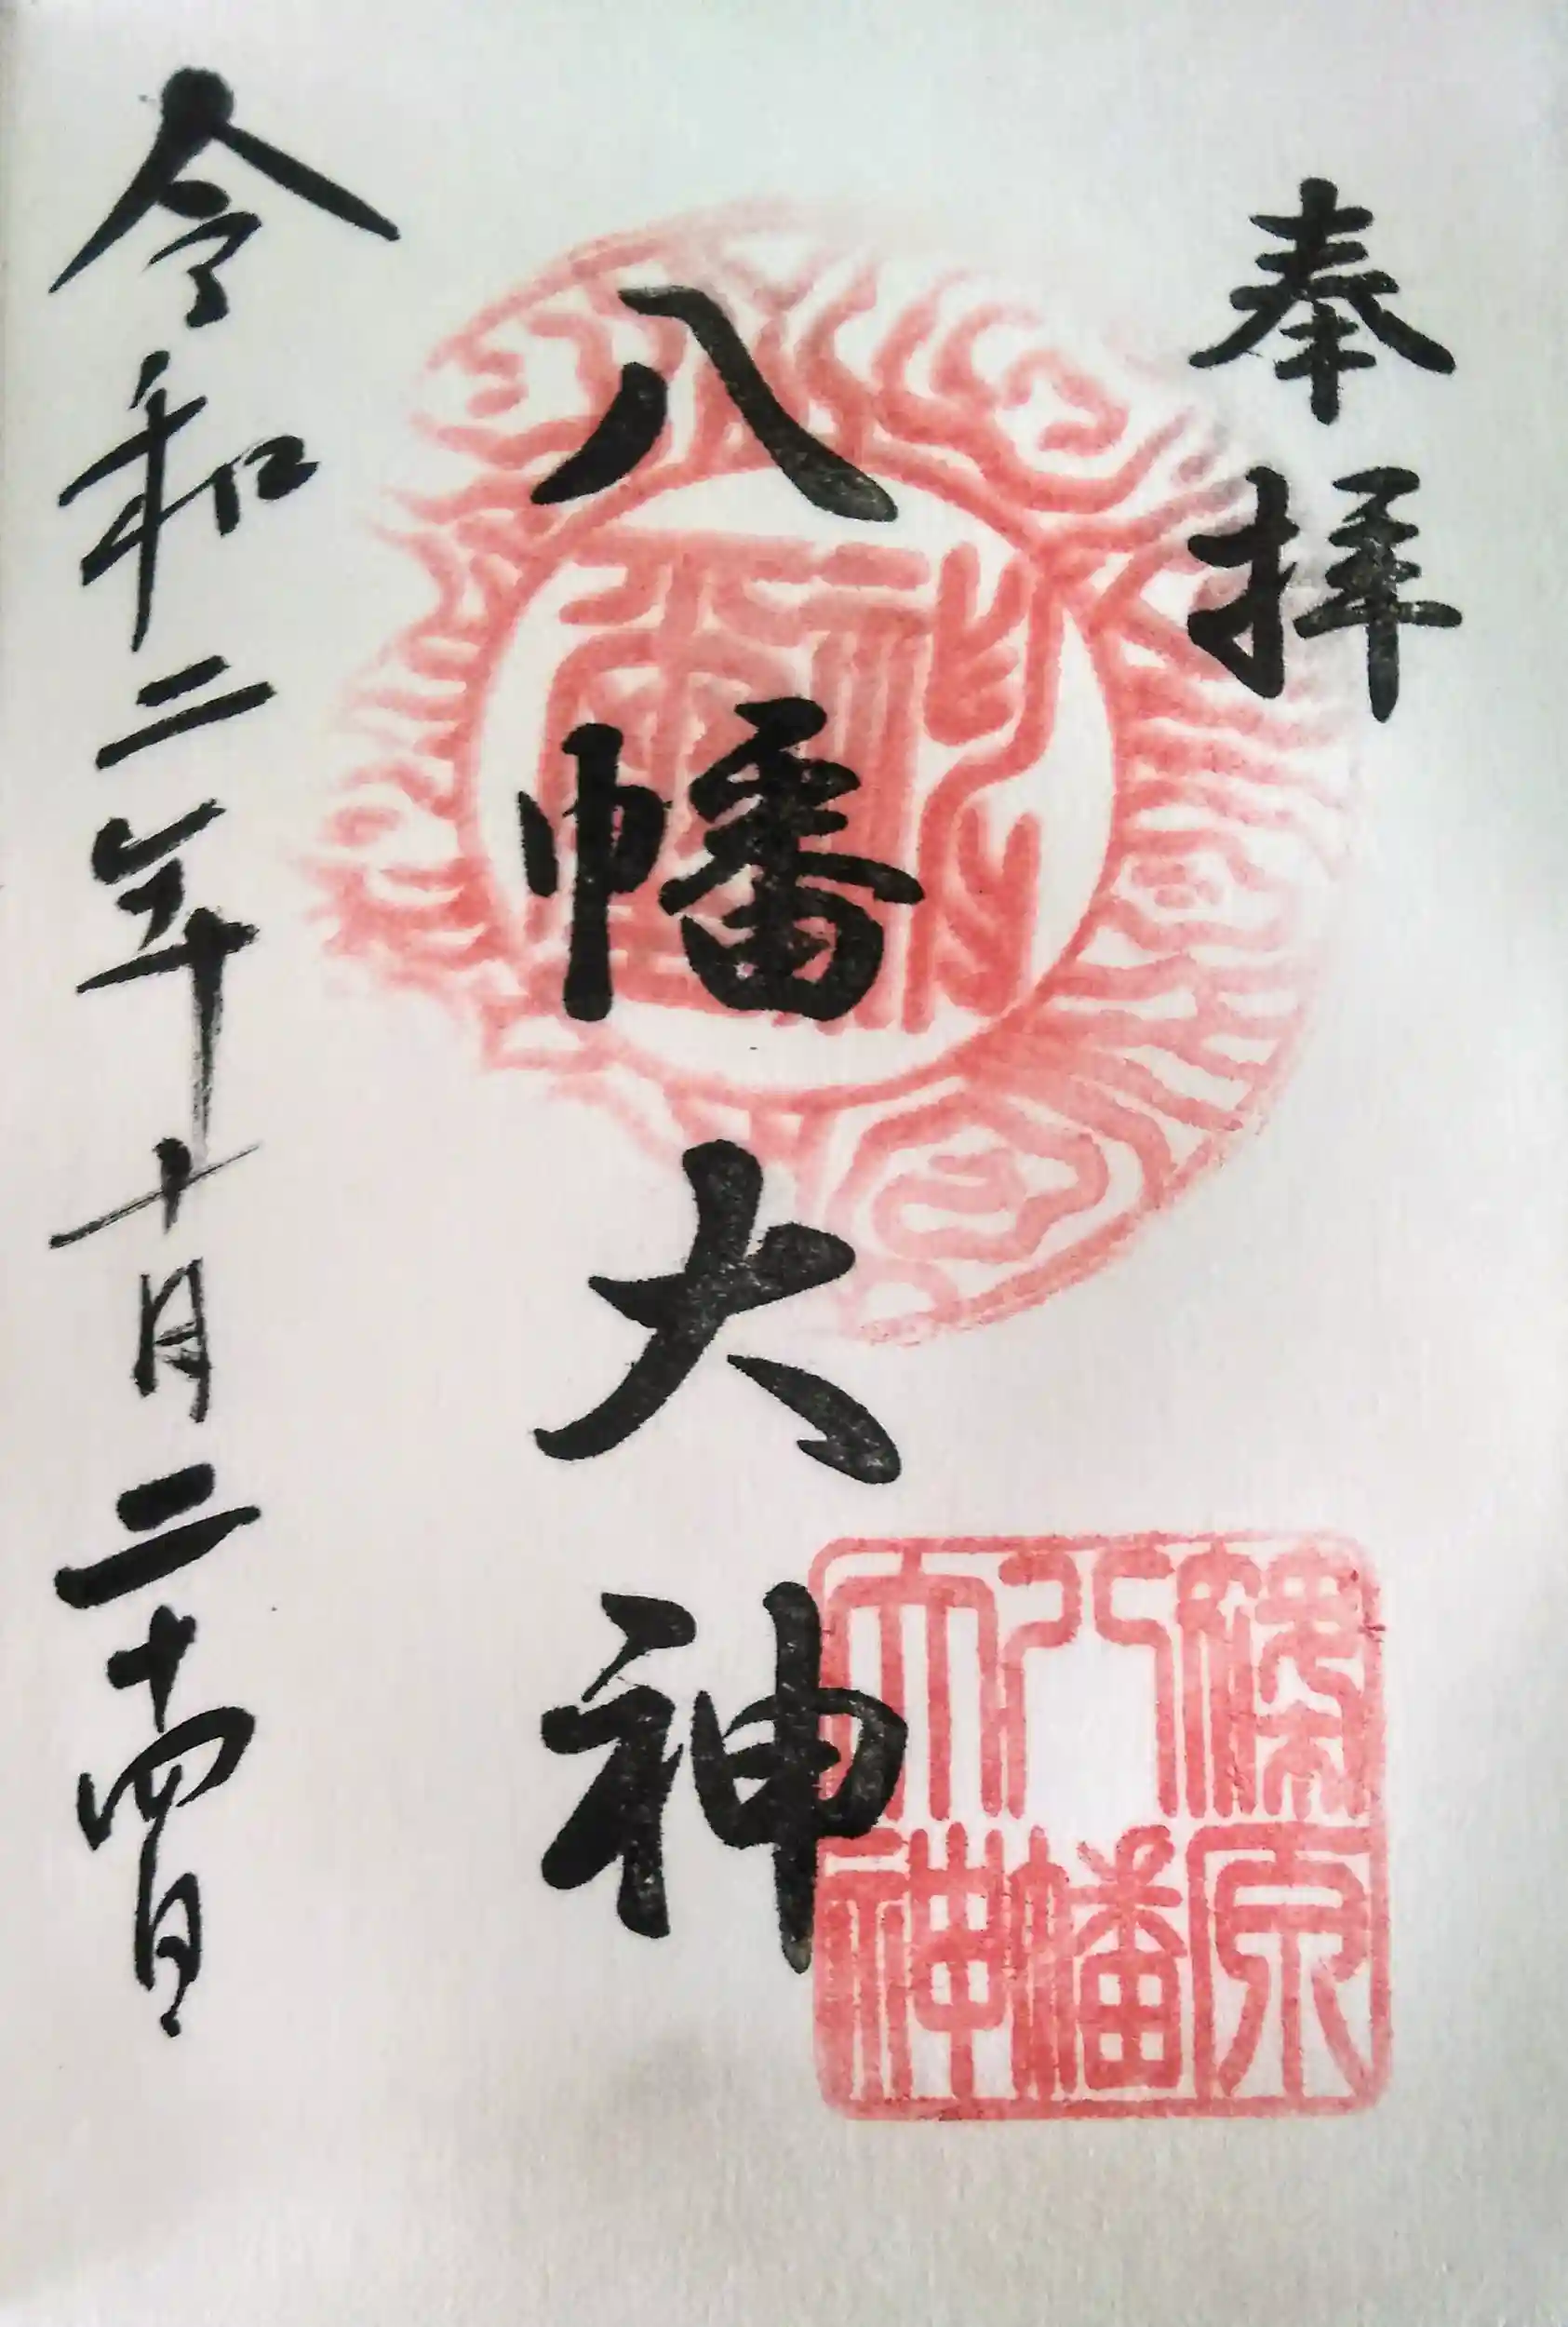 奉拝
八幡大神
令和二年十月二十四日